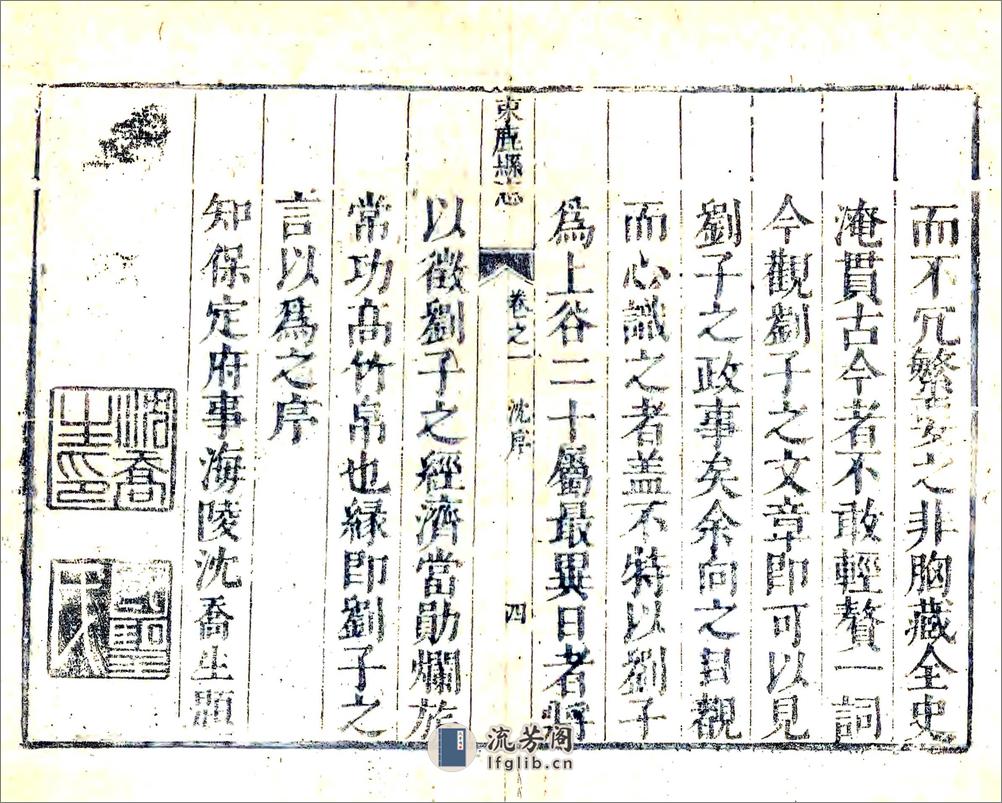 而不冗繁要之非胸藏全史
淹貫古今者不敢輕贅一詞
今觀劉子之文章即可以見
劉子之政事矣余向之目覩
而心識之者盖不特以劉子
爲上谷二十屬最異日者將
束鹿縣志 卷之一 沈序 四
以徵劉子之經濟當勛爛旂
常功高竹帛也緣即劉子之
言以爲之序
知保定府事海陵沈喬生題
沈喬生印
流芳阁
lfglib.cn